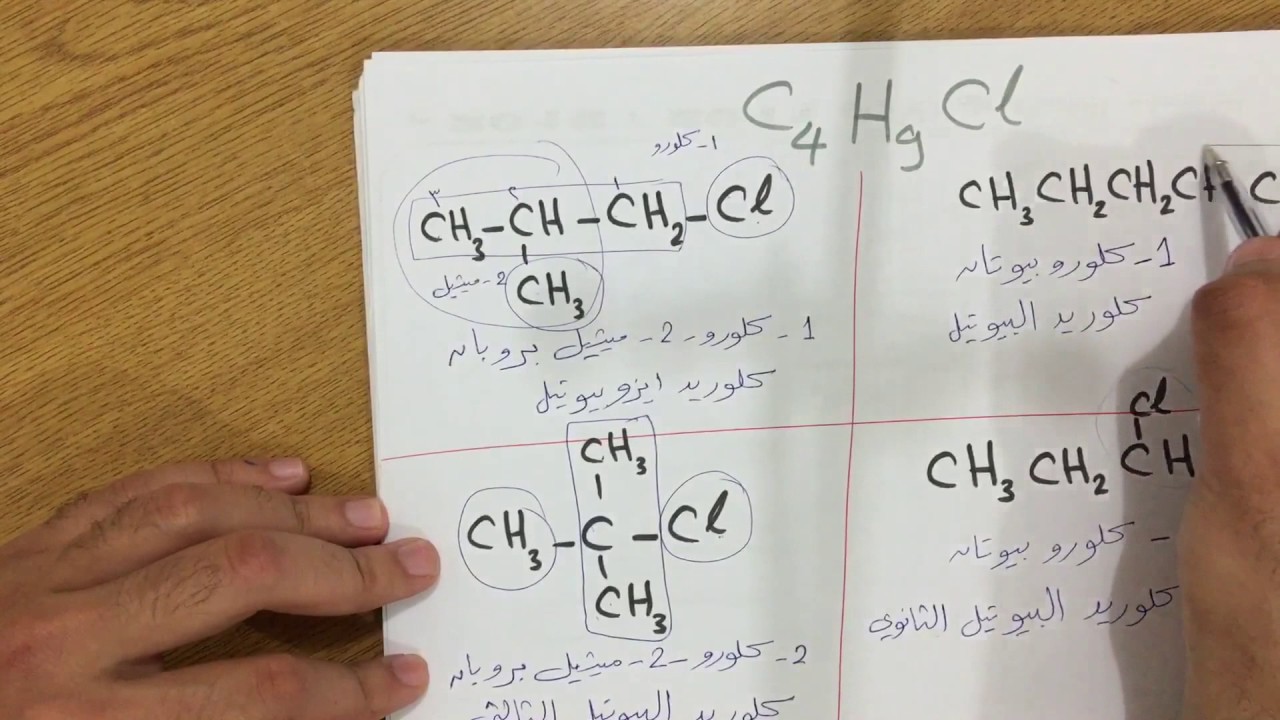 C₄H₉Cl
1-كلورو
٣ ٢ ١
CH₃-CH-CH₂-Cl
2-ميثيل
CH₃
1-كلورو-2-ميثيل بروبان
كلوريد ايزوبيوتيل
CH₃CH₂CH₂C
1-كلورو بيوتان
كلوريد البيوتيل
CH₃
CH₃-C-Cl
CH₃
2-كلورو-2-ميثيل بروبان
كلوريد البيوتيل الثالثي
Cl
CH₃CH₂CH
- كلورو بيوتان
كلوريد البيوتيل الثانوي